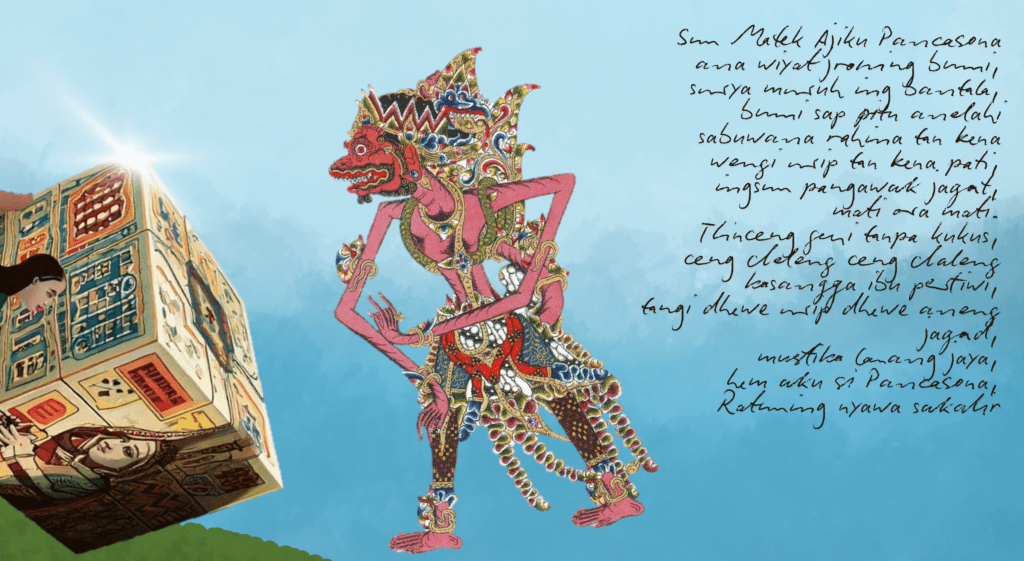 Sun Matek Ajiku Pancasona
ana wiyat jroning bumi,
surya murub ing bantala,
bumi sap pitu anelahi
sabuwana rahina tan kena
wengi urip tan kena pati,
ingsun pangawak jagat,
mati ora mati.
Tlinceng geni tanpa kukus,
ceng cleleng ceng claleng
kasangga ibu pertiwi,
tangi dhewe urip dhewe aneng
jagad,
mustika lanang jaya,
hem aku si Pancasona,
Ratuning nyawa sakalir